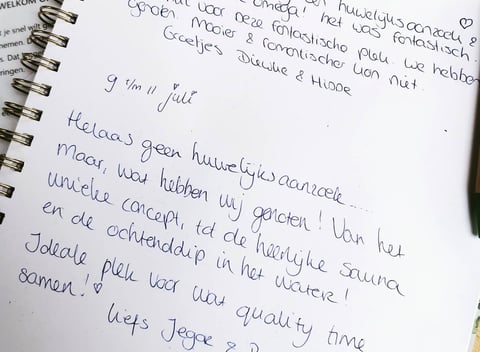 WELKOM
je snel wilt
nemen. D
s. Dat
ringen.
huwelijksaanzoek &
omega! het was fantastisch.
voor deze fantastische plek. We hebben
genoten. Mooier & romantischer kon niet.
Groetjes Dieuwke & Hidde
9 t/m 11 juli
Helaas geen huwelijksaanzoek.....
Maar, wat hebben wij genoten! Van het
unieke concept, tot de heerlijke sauna
en de ochtenddip in het water!
Ideale plek voor wat quality time
samen!
liefs Jegae &